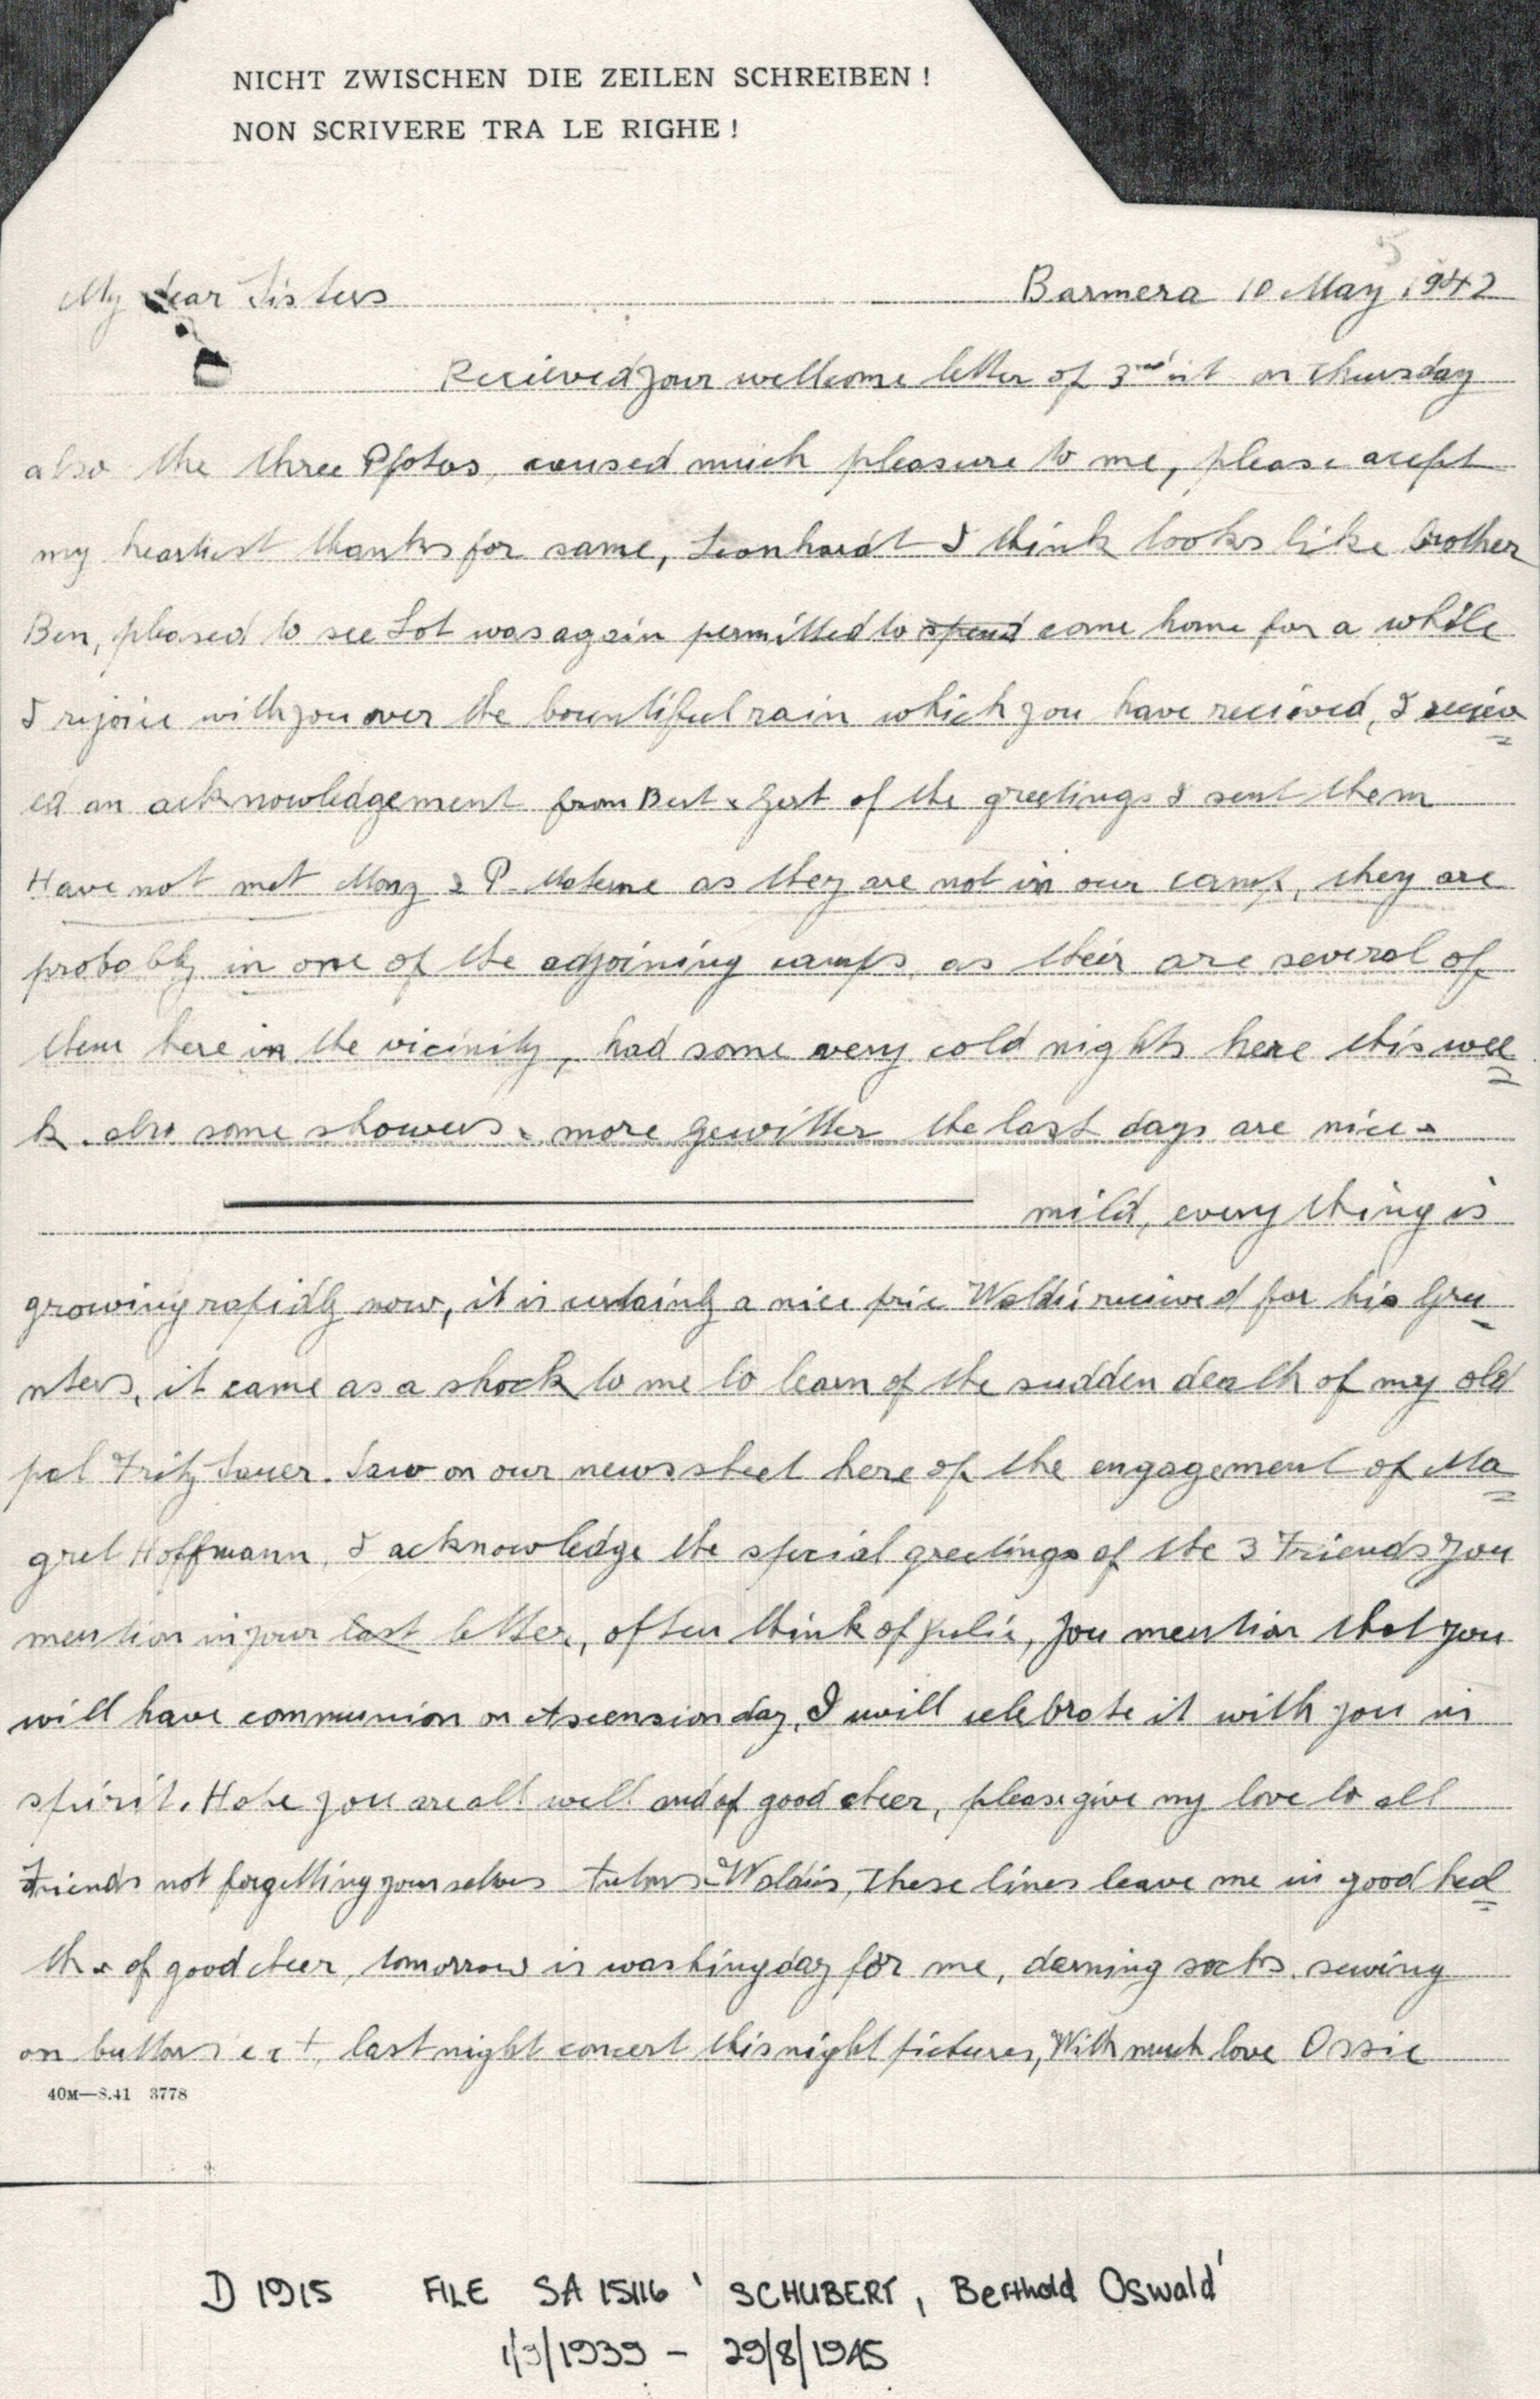 NICHT ZWISCHEN DIE ZEILEN SCHREIBEN !
NON SCRIVERE TRA LE RIGHE !
My dear Sisters Barmera 10 May 1942
Recieved your wellcome letter of 3rd on Thursday
also the three Pfotos, caused much pleasure to me, please acept
my heartiest thanks for same, Leonhardt I think looks like brother
Ben, pleased to see Lot was again permitted to spend come home for a while
I rejoice with you over the bountiful rain which you have recieved, I reciev
ed an acknowledgement from Bert & Gert of the greetings I sent them
Have not met & P. Materne as they are not in our camp, they are
probably in one of the adjoining camps, as their are several of
them here in the vicinity, had some very cold nights here this wee
k. also some showers & more gewitter the last days are nice &
mild, every thing is
growing rapidly now, it is certainly a nice price Waldi recieved for his Gru
nters, it came as a shock to me to learn of the sudden death of my old
pal Fritz Sauer. Saw on our news sheet here of the engagement of Ma
gret Hoffmann, I acknowledge the special greetings of the 3 Friends you
mention in your last letter, often think of Julie, you mention that you
will have communion on Ascension day, I will celebrate it with you in
spirit. Hope you are all well and of good cheer, please give my love to all
Friends not forgetting yourselves & Waldis, These lines leave me in good heal
th & of good cheer, tomorrow is washing day for me, darning socks, sewing
on buttons ect, last night concert this night pictures, With much love Ossie
40M—8.41 3778
D 1915 FILE SA 15116 'SCHUBERT, Berthold Oswald'
1/9/1939 – 29/8/1945